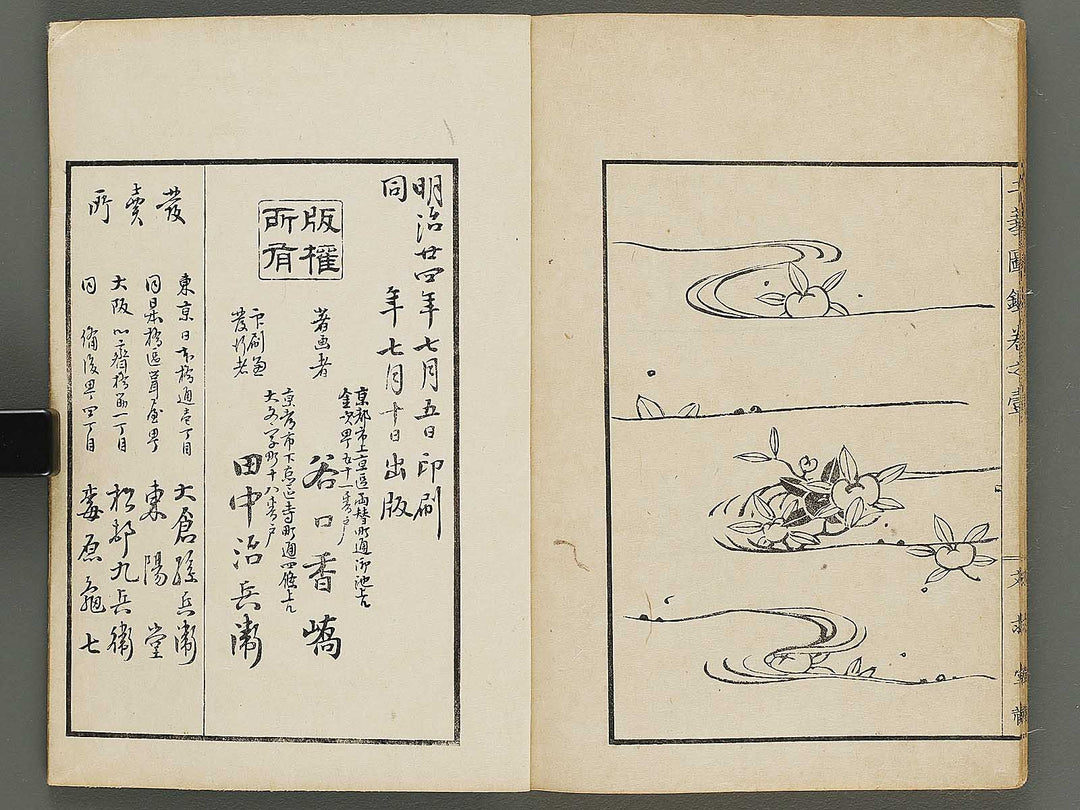 工藝圖鑑卷之壹
文求堂
明治廿四年七月五日印刷
同 年七月十日出版
版權所有
著画者
京都市上京區両替町通御池上
金吹町五十一番戸
谷口香嶠
印刷兼
發行者
京都市下京區寺町通四條上ル
大文字町十八番戸
田中治兵衞
發賣所
東京日本橋通壱丁目
大倉孫兵衞
同京橋區
東陽堂
大阪心斎橋
松村九兵衞
同 備後町四丁目
梅原亀七